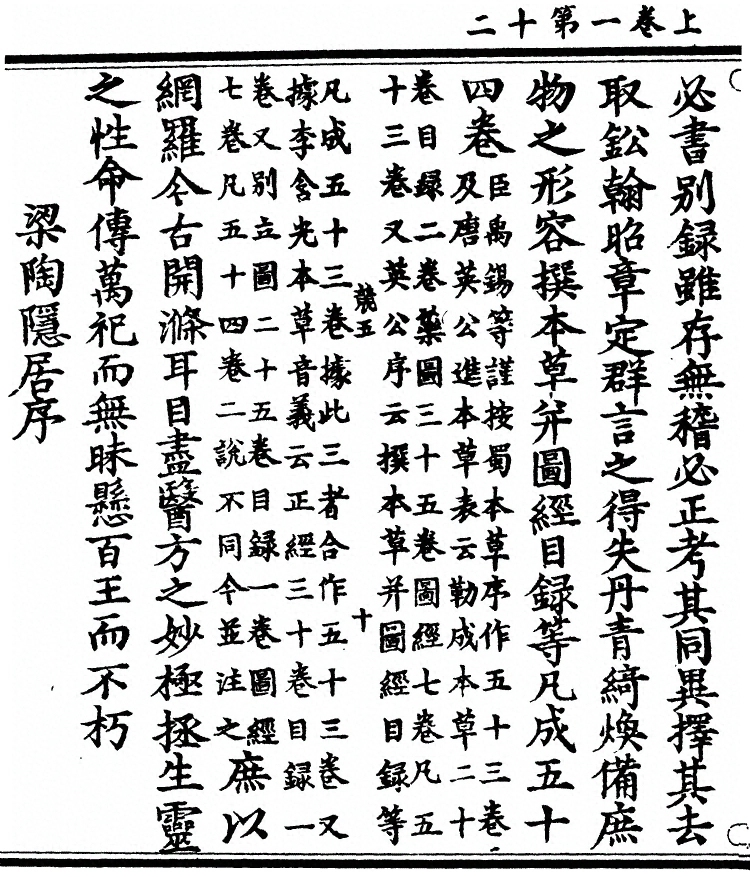 上卷一第十二
必書別録雖存無稽必正考其同異擇其去
取鈆翰昭章定群言之得失丹青綺煥備庶
物之形容撰本草并圖經目録等凡成五十
四卷
臣禹錫等謹按蜀本草序作五十三卷
及唐英公進本草表云勒成本草二十
卷目録二卷藥圖三十五卷圖經七卷凡五
十三卷又英公序云撰本草并圖經目録等
五
十
凡成五十三卷據此三者合作五十三卷又
據李含光本草音義云正經三十卷目録一
卷又別立圖二十五卷目録一卷圖經
七卷凡五十四卷二說不同今並注之
庶以
網羅今古開滌耳目盡醫方之妙極拯生靈
之性命傳萬祀而無昧懸百王而不朽
梁陶隱居序